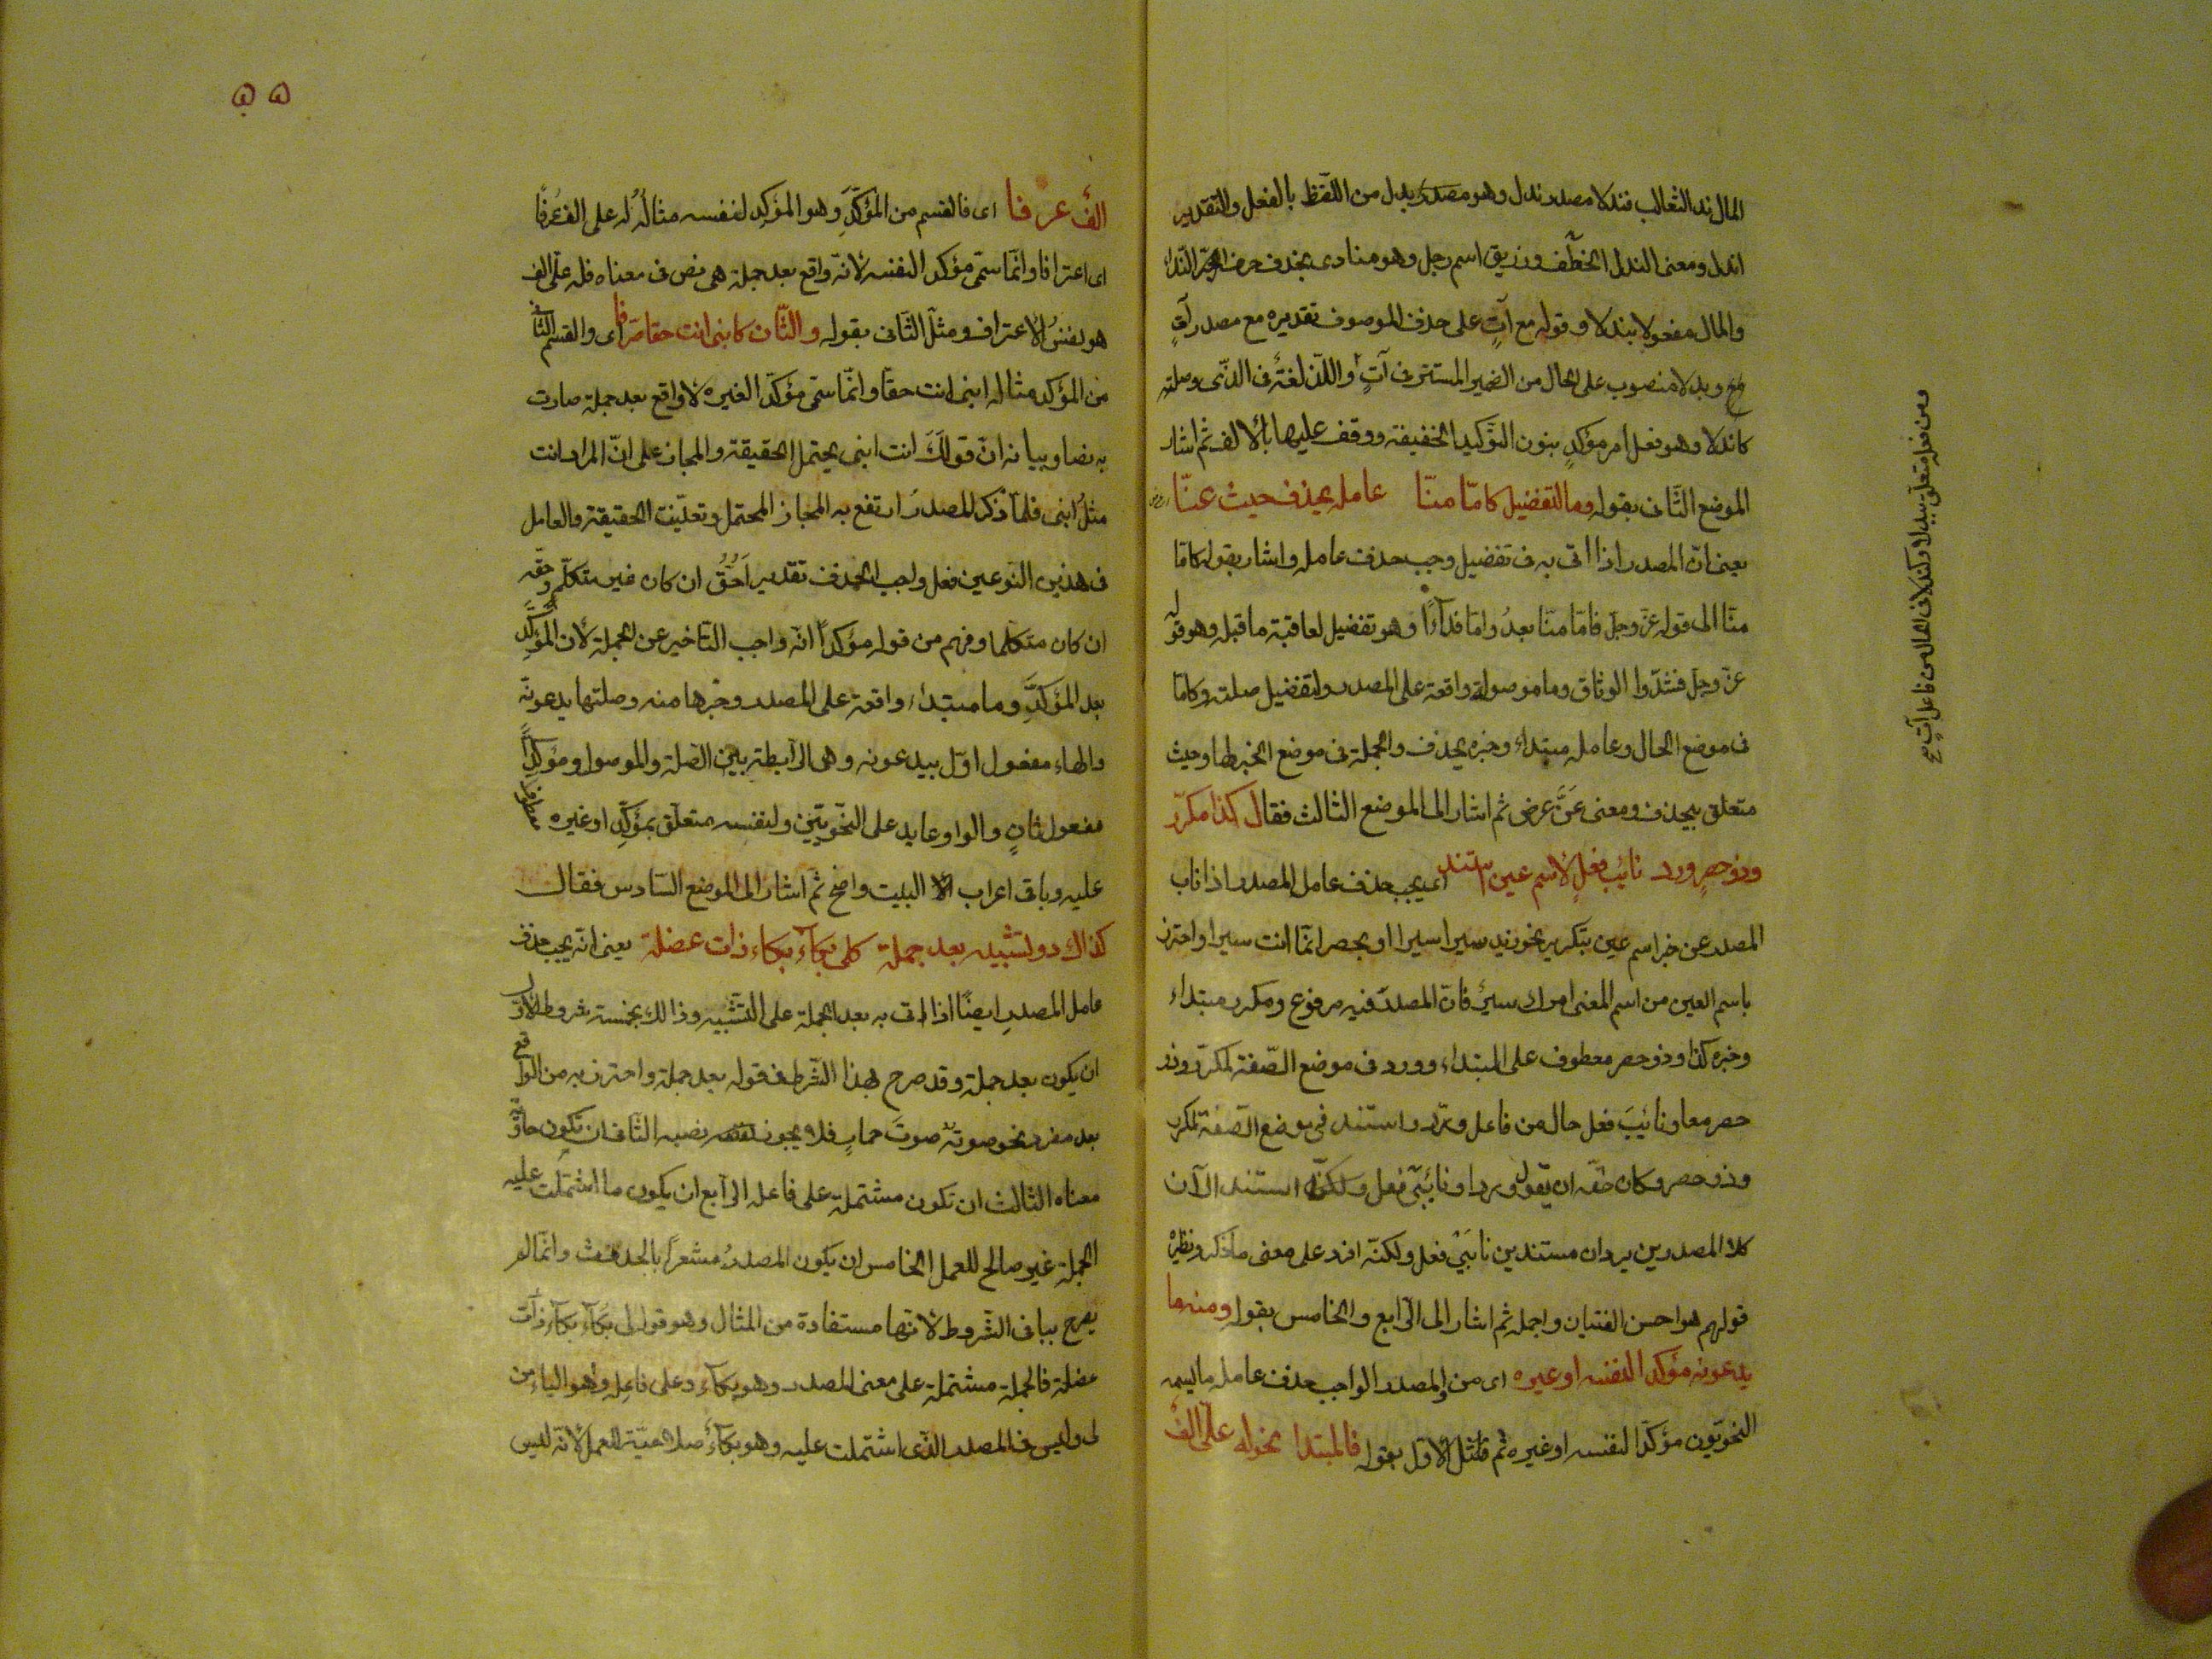 المال ندل الثعالب فندلا مصدر ندل وهو مصدر بدل من اللفظ بالفعل والتقدير
اندل ومعنى الندل الخطف وزريق اسم رجل وهو منادى بحذف حرف النداء
والمال مفعولا بندلا وقوله مع آتٍ على حذف الموصوف تقديره مع مصدر آتٍ
وبدلا منصوب على الحال من الضمير المستتر فى آتٍ واللذ لغة فى الذى وصلته
كاندلا وهو فعل امر مؤكدٍ بنون التوكيد الخفيفة ووقف عليها بالالف ثم اشار
الموضع الثانى بقوله وما لتفضيل كامّا منّا عامله يحذف حيث عنّا
يعنى انّ المصدر اذا اتى به فى تفضيل وجب حذف عامله واشار بقوله كامّا
منّا الى قوله عزّ وجل فامّا منّا بعدُ وامّا فداءً وهو تفضيل لعاقبة ما قبله وهو قوله
عزّ وجل فشدّوا الوثاق وما موصولة واقعة على المصدر ولتفضيل صلته وكامّا
فى موضع الحال وعامله مبتداء وخبره يحذف والجملة فى موضع الخبر لما وحيث
متعلق بيحذف ومعنى عَنَّ عرض ثم اشار الى الموضع الثالث فقال كذا مكرّر
وذو حصرٍ ورد نائب فعلٍ لاسم عين استند اى يجب حذف عامل المصدر اذا ناب
المصدر عن خبر اسم عين بتكرير نحو زيد سيرا سيرا او بحصر انّما انت سيرا واحترز
باسم العين من اسم المعنى امرك سيرٌ فانّ المصدر فيه مرفوع ومكرر مبتداء
وخبره كذا وذو حصر معطوف على المبتداء وورد فى موضع الصّفة لمكرّر وذو
حصر معا ونائبَ فعل حال من فاعل ورد واستند فى موضع الصّفة لمكرر
وذو حصر وكان حقّه ان يقول وردا ونائبَى فعل ولكنّه استند الآن
كلا المصدرين يردان مستندين نائبَىْ فعل ولكنّه افرد على معنى ما ذكر ونظيره
قولهم هو احسن الفتيان واجمله ثم اشار الى الرّابع والخامس بقوله ومنه ما
يدعونه مؤكدا لنفسه او غيره اى من المصدر الواجب حذف عامله ما يسمه
النحويّون مؤكّدا لنفسه او غيره ثم مثل الاوّل بقوله فالمبتدا نحو له علىّ الف
ومن فعل متعلق ببدلا وكندلا فى الحال من فاعل آتٍ صح
۵۵
الفٌ عرفا اى فالقسم من المؤكِّد وهو المؤكد لنفسه مثاله له على الف عرفًا
اى اعترافا وانّما سمّى مؤكد النفسه لانّه واقع بعد جملة هى نص فى معناه فله علىّ الف
هو نفسُ الاعتراف ومثل الثانى بقوله والثّان كابنى انت حقا صرفا اى والقسم الثّانى
من المؤكد مثاله ابنى انت حقّا وانّما سمّى مؤكدّا لغيره لا واقع بعد جملة صارت
به نصا وبيانه انّ قولَكَ انت ابنى يحتمل الحقيقة والمجاز على انّ المراد انت
مثلُ ابنى فلمّا ذكر المصدرُ ارتفع به المجاز المحتمل وتعيّنت الحقيقة والعامل
فى هذين النّوعين فعل واجب الحذف تقديره اَحُقُّ ان كان غير متكلّم وحقّه
ان كان متكلما وفهم من قوله مؤكداً انّه واجب التأخير عن الجملة لأن المؤكِّد
بعد المؤكَّد وما مبتداء واقعة على المصدر وخبرها منه وصلتها يدعونه
والهاء مفعول اوّل بيدعونه وهى الرّابطة بين الصّلة والموصول ومؤكِّداً
مفعول ثانٍ والواو عايد على النّحويّين ولنفسه متعلّق بمؤكِّد او غيره معطوف
عليه وباقى اعراب البيت واضح ثم اشار الى الموضع السّادس فقال
كذاك ذو تشبيه بعد جملة كلى بكاً بكاء ذات عضلة يعنى انّه يجب حذف
عامل المصدرِ ايضًا اذا اتى به بعد الجملة على التشبيه وذالك بخمسة شروط الاوّل
ان يكون بعد جملة وقد صرح بهذا الشّرط فى قوله بعد جملة واحترز به من الواقع
بعد مفرد نحو صوته صوتَ حمارٍ فلا يجوز نصبه الثّانى ان تكون حاوية
معناه الثالث ان تكون مشتملة على فاعله الرّابع ان يكون ما اشتملت عليه
الجملة غير صالح للعمل الخامس ان يكون المصدرُ مشعراً بالحدوث وانّما لم
يصرح بباقى الشّروط لانّها مستفادة من المثال وهو قوله لى بكاً بكاء ذات
عضلة فالجملة مشتملة على معنى المصدر وهو بكاء وعلى فاعله وهو الياء من
لى وليس فى المصدر الّذى اشتملت عليه وهو بكاءٌ صلاحيّة للعمل لانّه ليس